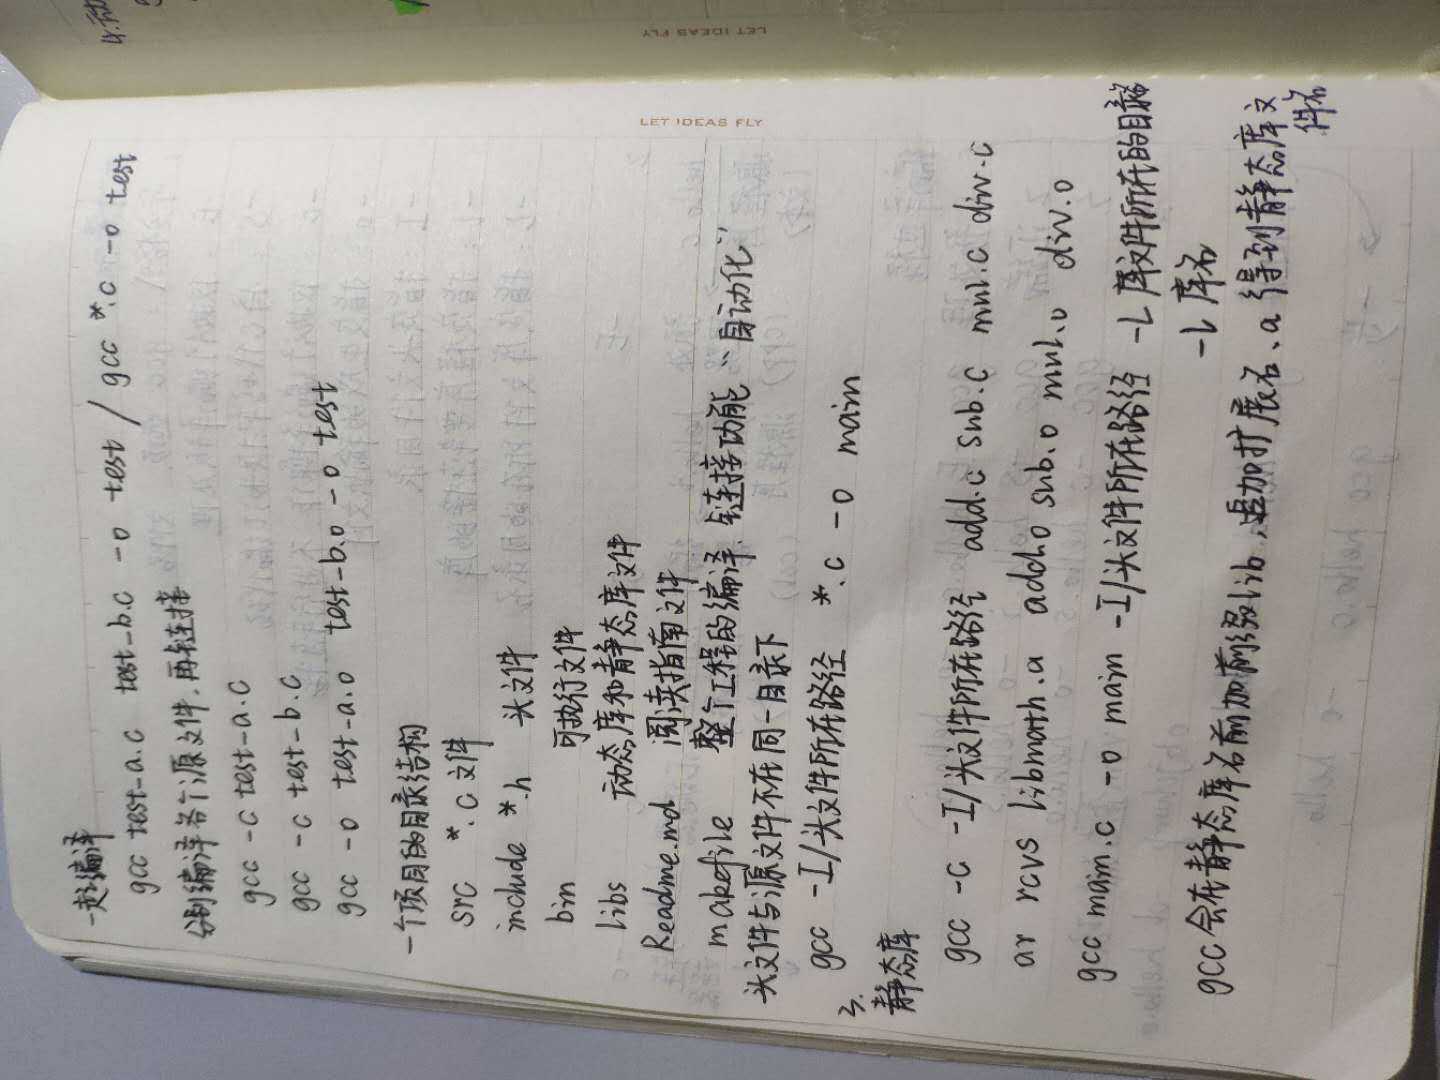 LET IDEAS FLY
LET IDEAS FLY
一起编译
gcc test-a.c test-b.c -o test / gcc *.c -o test
分别编译各个源文件,再链接
gcc -c test-a.c
gcc -c test-b.c
gcc -o test-a.o test-b.o -o test
一个项目的目录结构
src *.c文件
include *.h 头文件
bin 可执行文件
libs 动态库和静态库文件
Readme.md 阅读指南文件
makefile 整个工程的编译、链接功能 "自动化"
头文件与源文件不在同一目录下
gcc -I/头文件所在路径 *.c -o main
3.
静态库
gcc -c -I/头文件所在路径 add.c sub.c mul.c div.c
ar rcvs libmath.a add.o sub.o mul.o div.o
gcc main.c -o main -I/头文件所在路径 -L 库文件所在的目录
-L 库名
gcc会在静态库名前加前缀lib,追加扩展名.a得到静态库文
件名